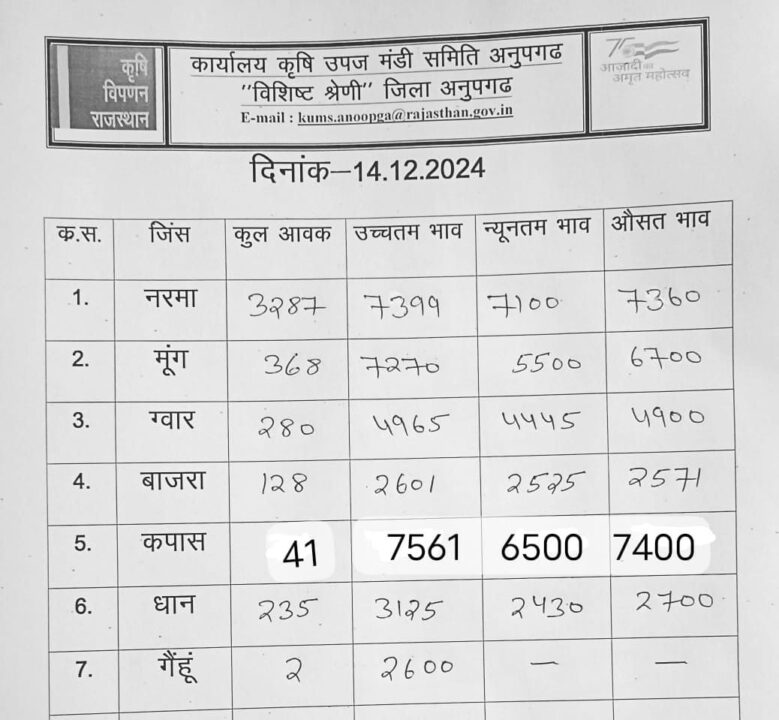 कृषि
विपणन
राजस्थान
कार्यालय कृषि उपज मंडी समिति अनुपगढ
"विशिष्ट श्रेणी" जिला अनुपगढ
E-mail : kums.anoopga@rajasthan.gov.in
75
आज़ादी का
अमृत महोत्सव
दिनांक–14.12.2024
क.स. जिंस कुल आवक उच्चतम भाव न्यूनतम भाव औसत भाव
1. नरमा 3287 7399 7100 7360
2. मूंग 368 7270 5500 6700
3. ग्वार 280 4965 4445 4900
4. बाजरा 128 2601 2525 2571
5. कपास 41 7561 6500 7400
6. धान 235 3125 2430 2700
7. गैंहूं 2 2600 — —